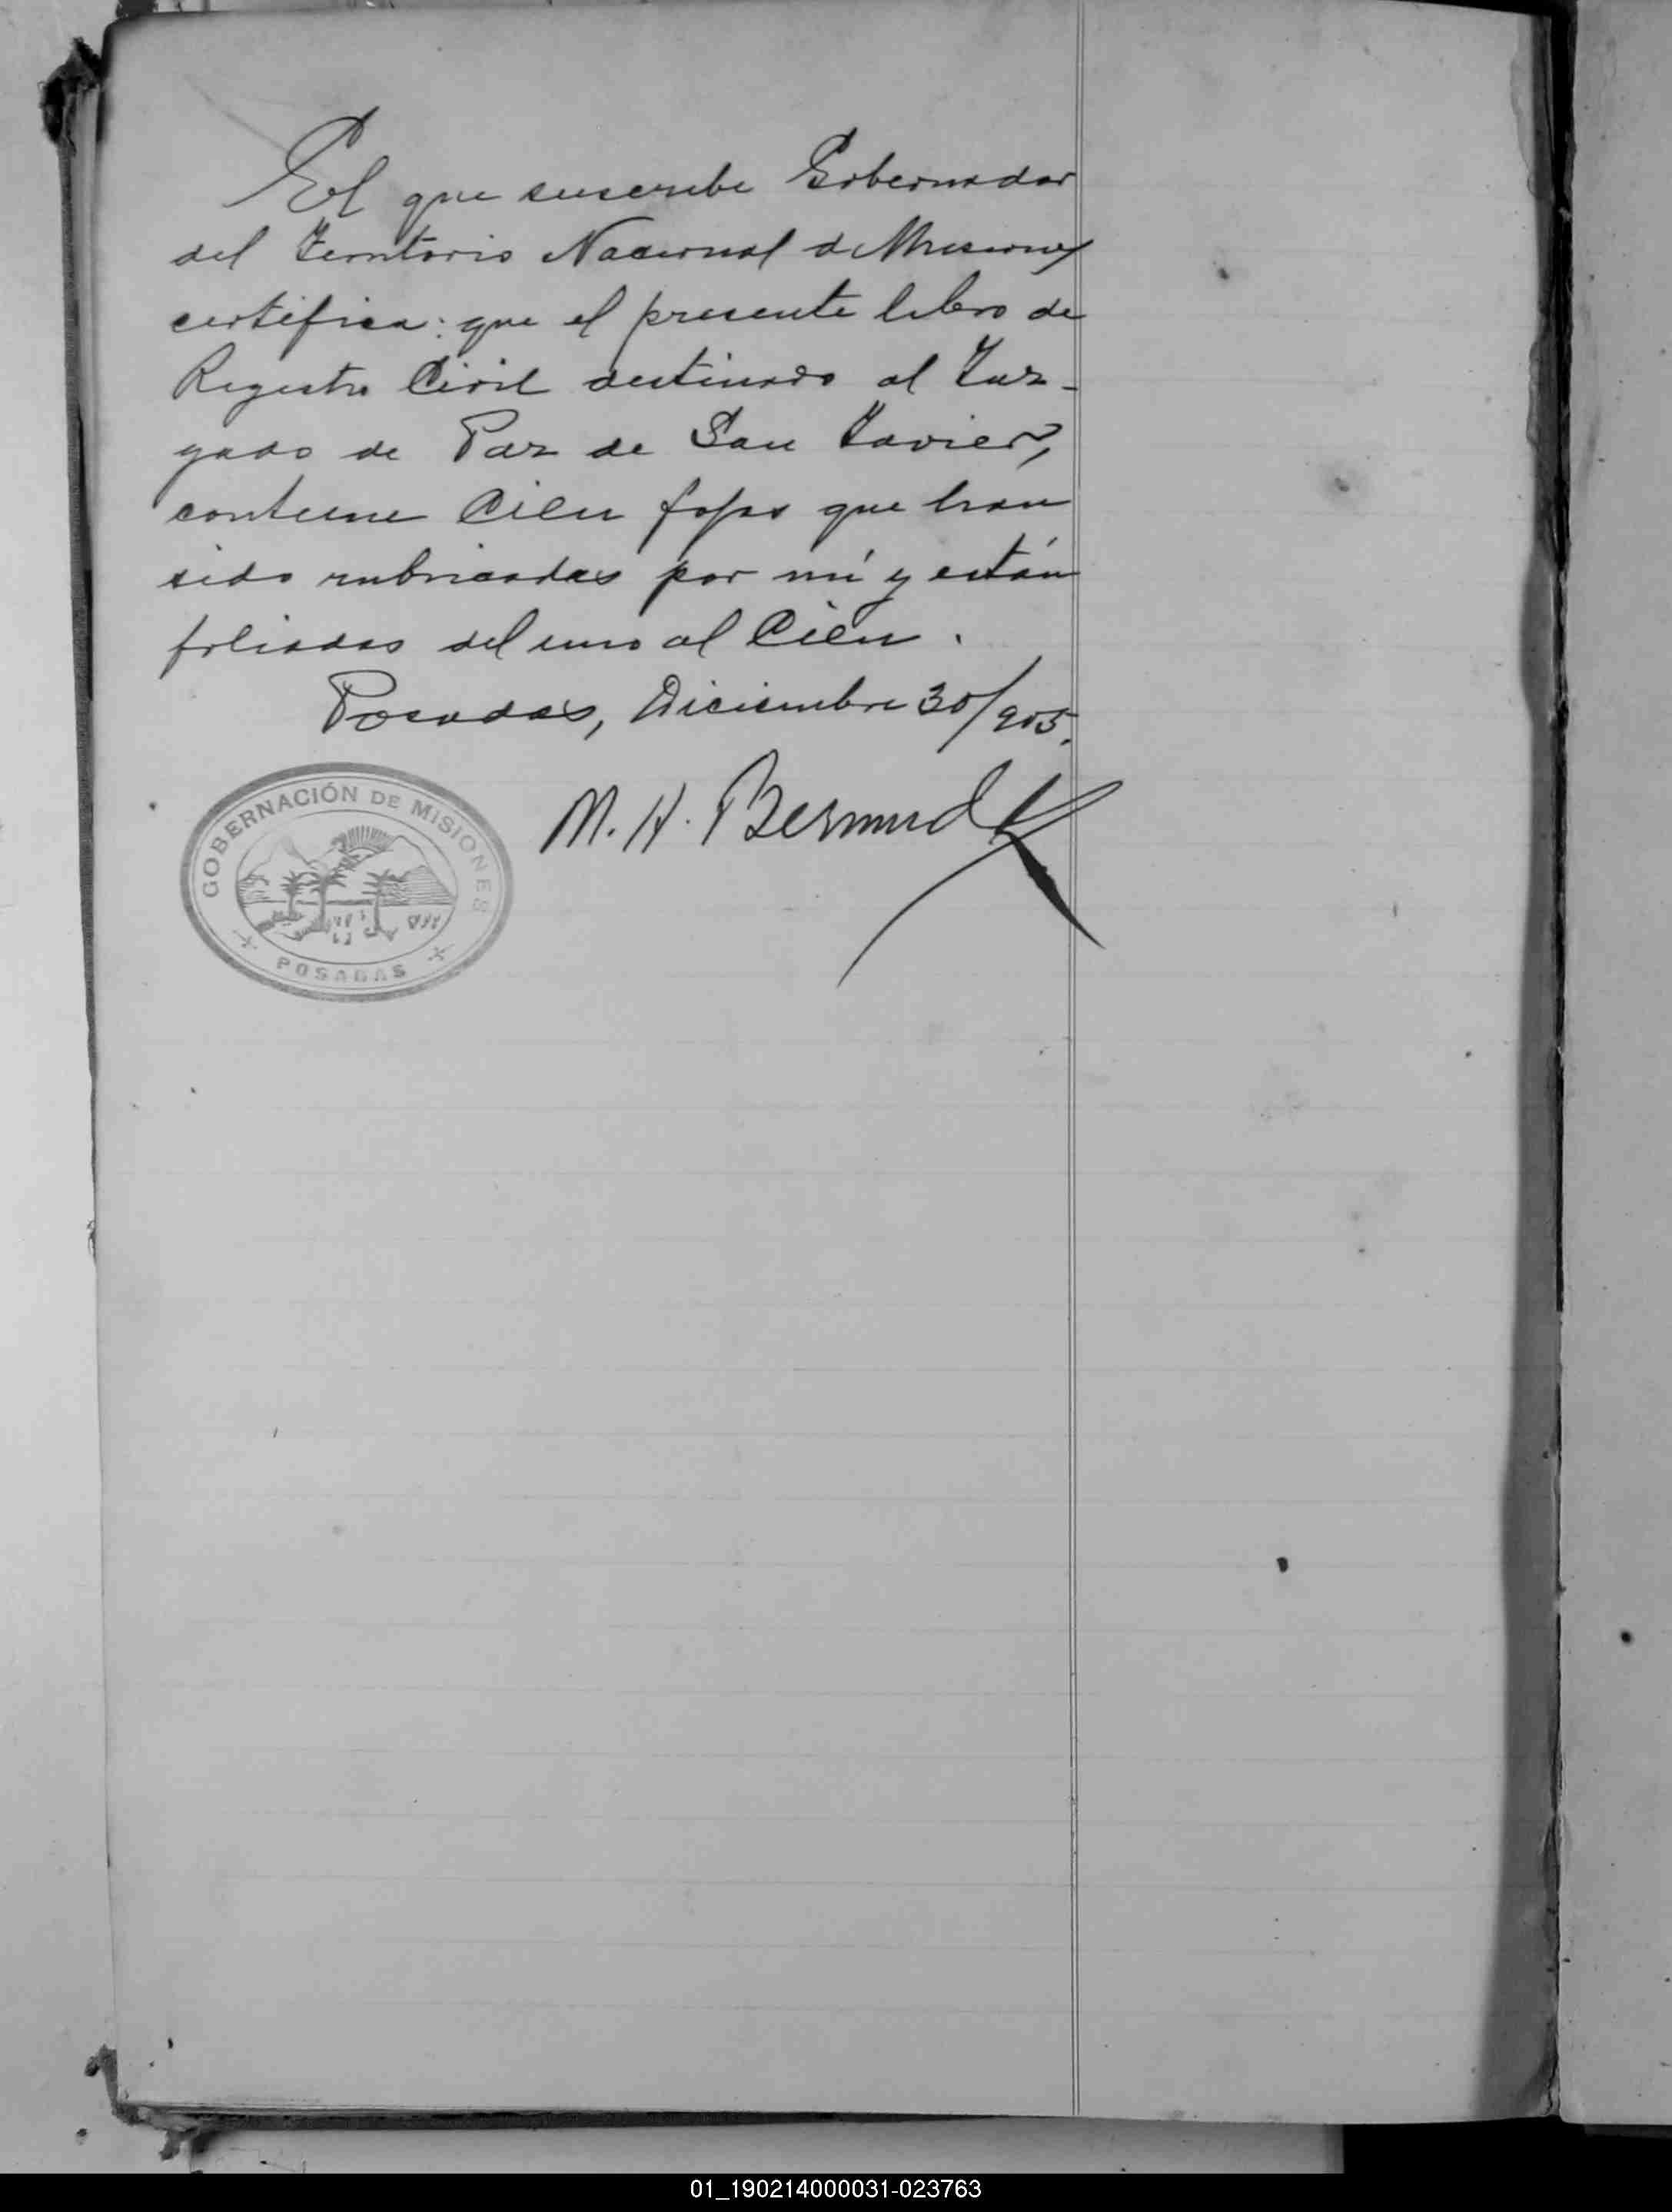 El que suscribe Gobernador
del Territorio Nacional de Misiones
certifica: que el presente libro de
Registro Civil destinado al Juz-
gado de Paz de San Javier,
contiene Cien fojas que han
sido rubricadas por mí y están
foliadas del uno al Cien.
Posadas, Diciembre 30/905.
M. H. Bermud
GOBERNACIÓN DE MISIONES
POSADAS
01_190214000031-023763